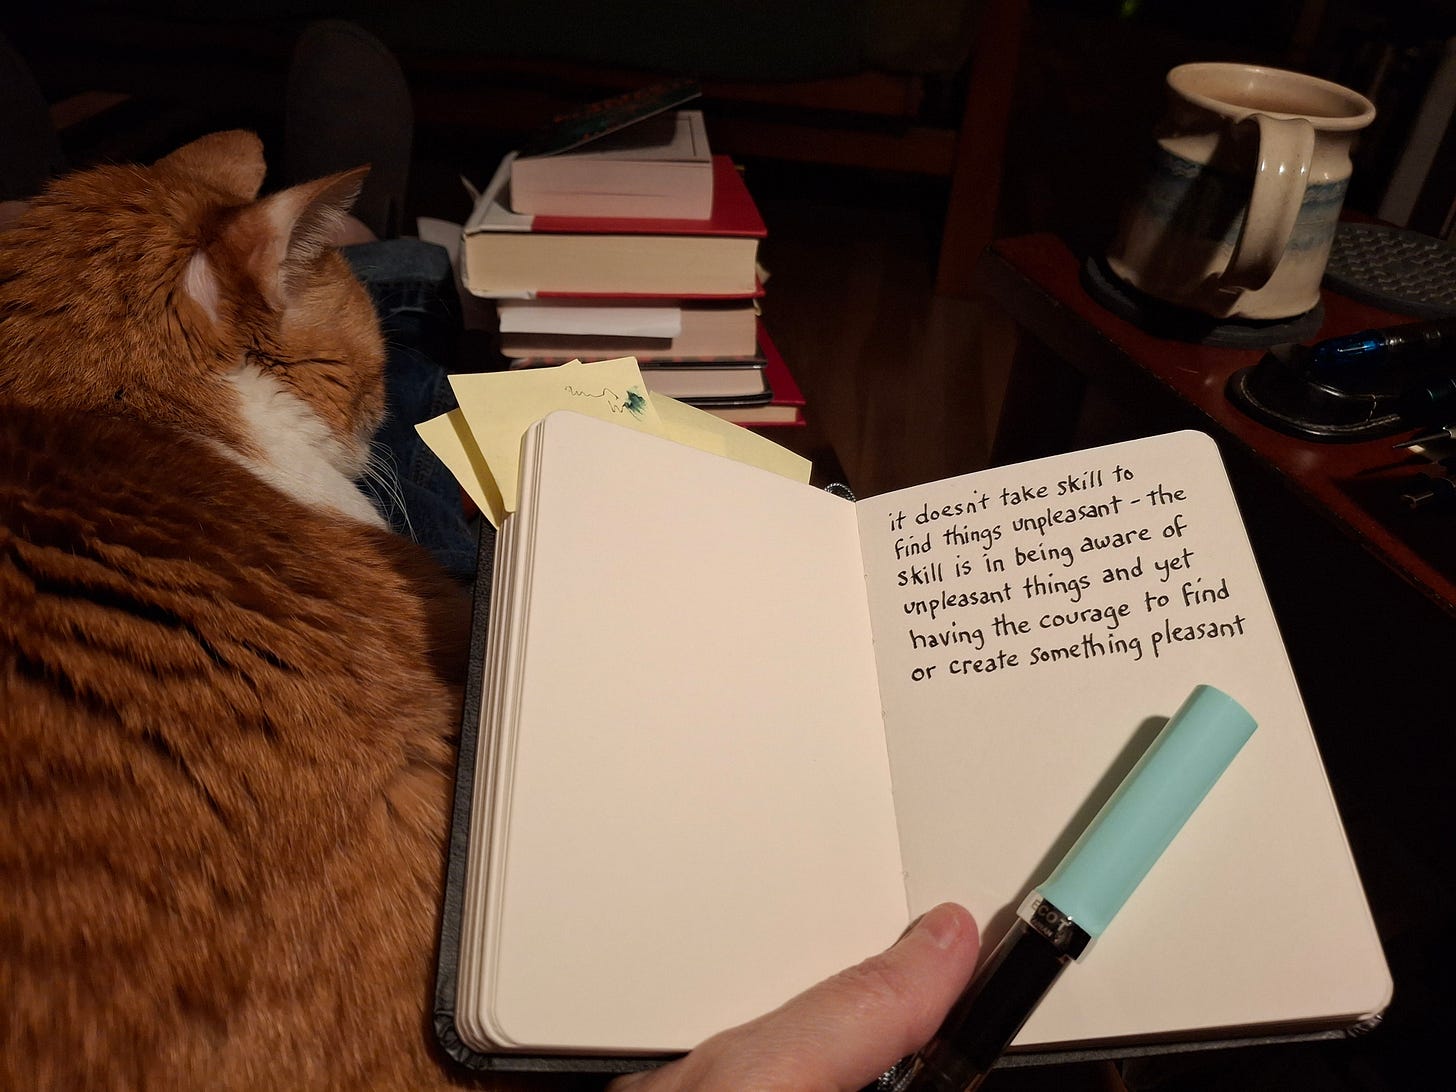 it doesn't take skill to
find things unpleasant - the
skill is in being aware of
unpleasant things and yet
having the courage to find
or create something pleasant
ECO